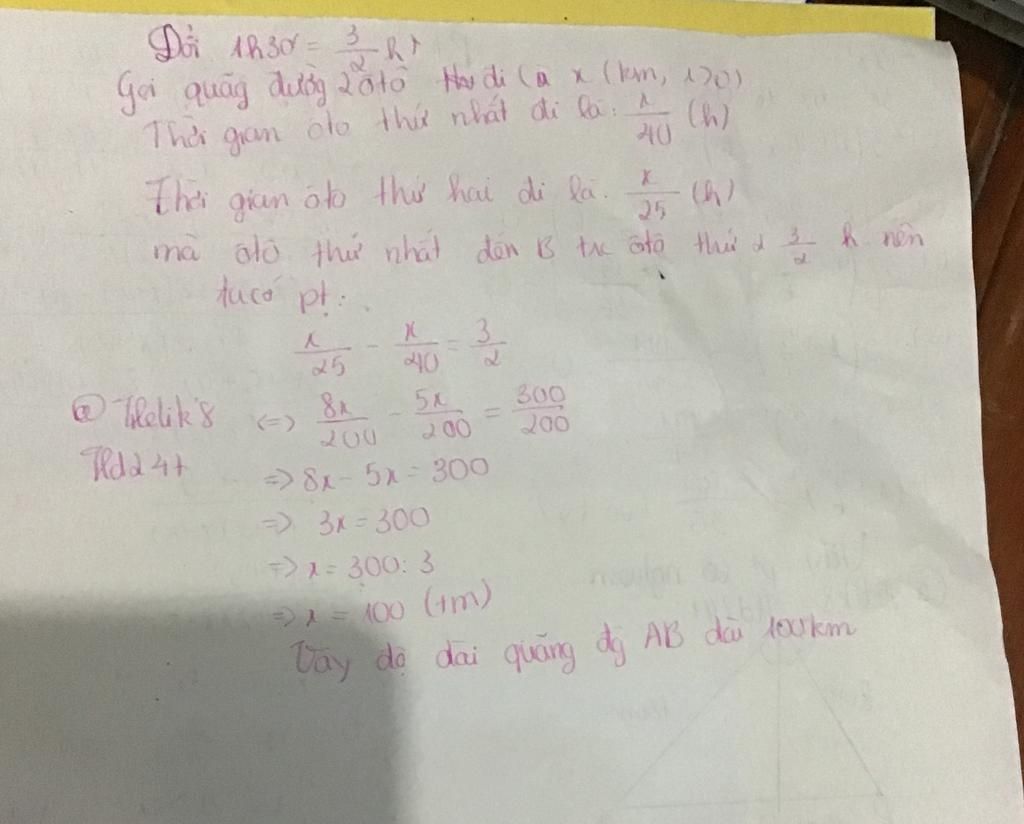 Đổi 1h30' = 3/2 h
Gọi quãng đường 2 ôtô đi là x (km, x>0)
Thời gian ôto thứ nhất đi là: x/40 (h)
Thời gian ôto thứ hai đi là. x/25 (h)
mà ôtô thứ nhất đến B tc ôtô thứ 2 3/2 h nên
ta có pt:
x/25 - x/40 = 3/2
<=> 8x/200 - 5x/200 = 300/200
=> 8x - 5x = 300
=> 3x = 300
=> x = 300 : 3
=> x = 100 (tm)
Vậy độ dài quãng đg AB dài 100km